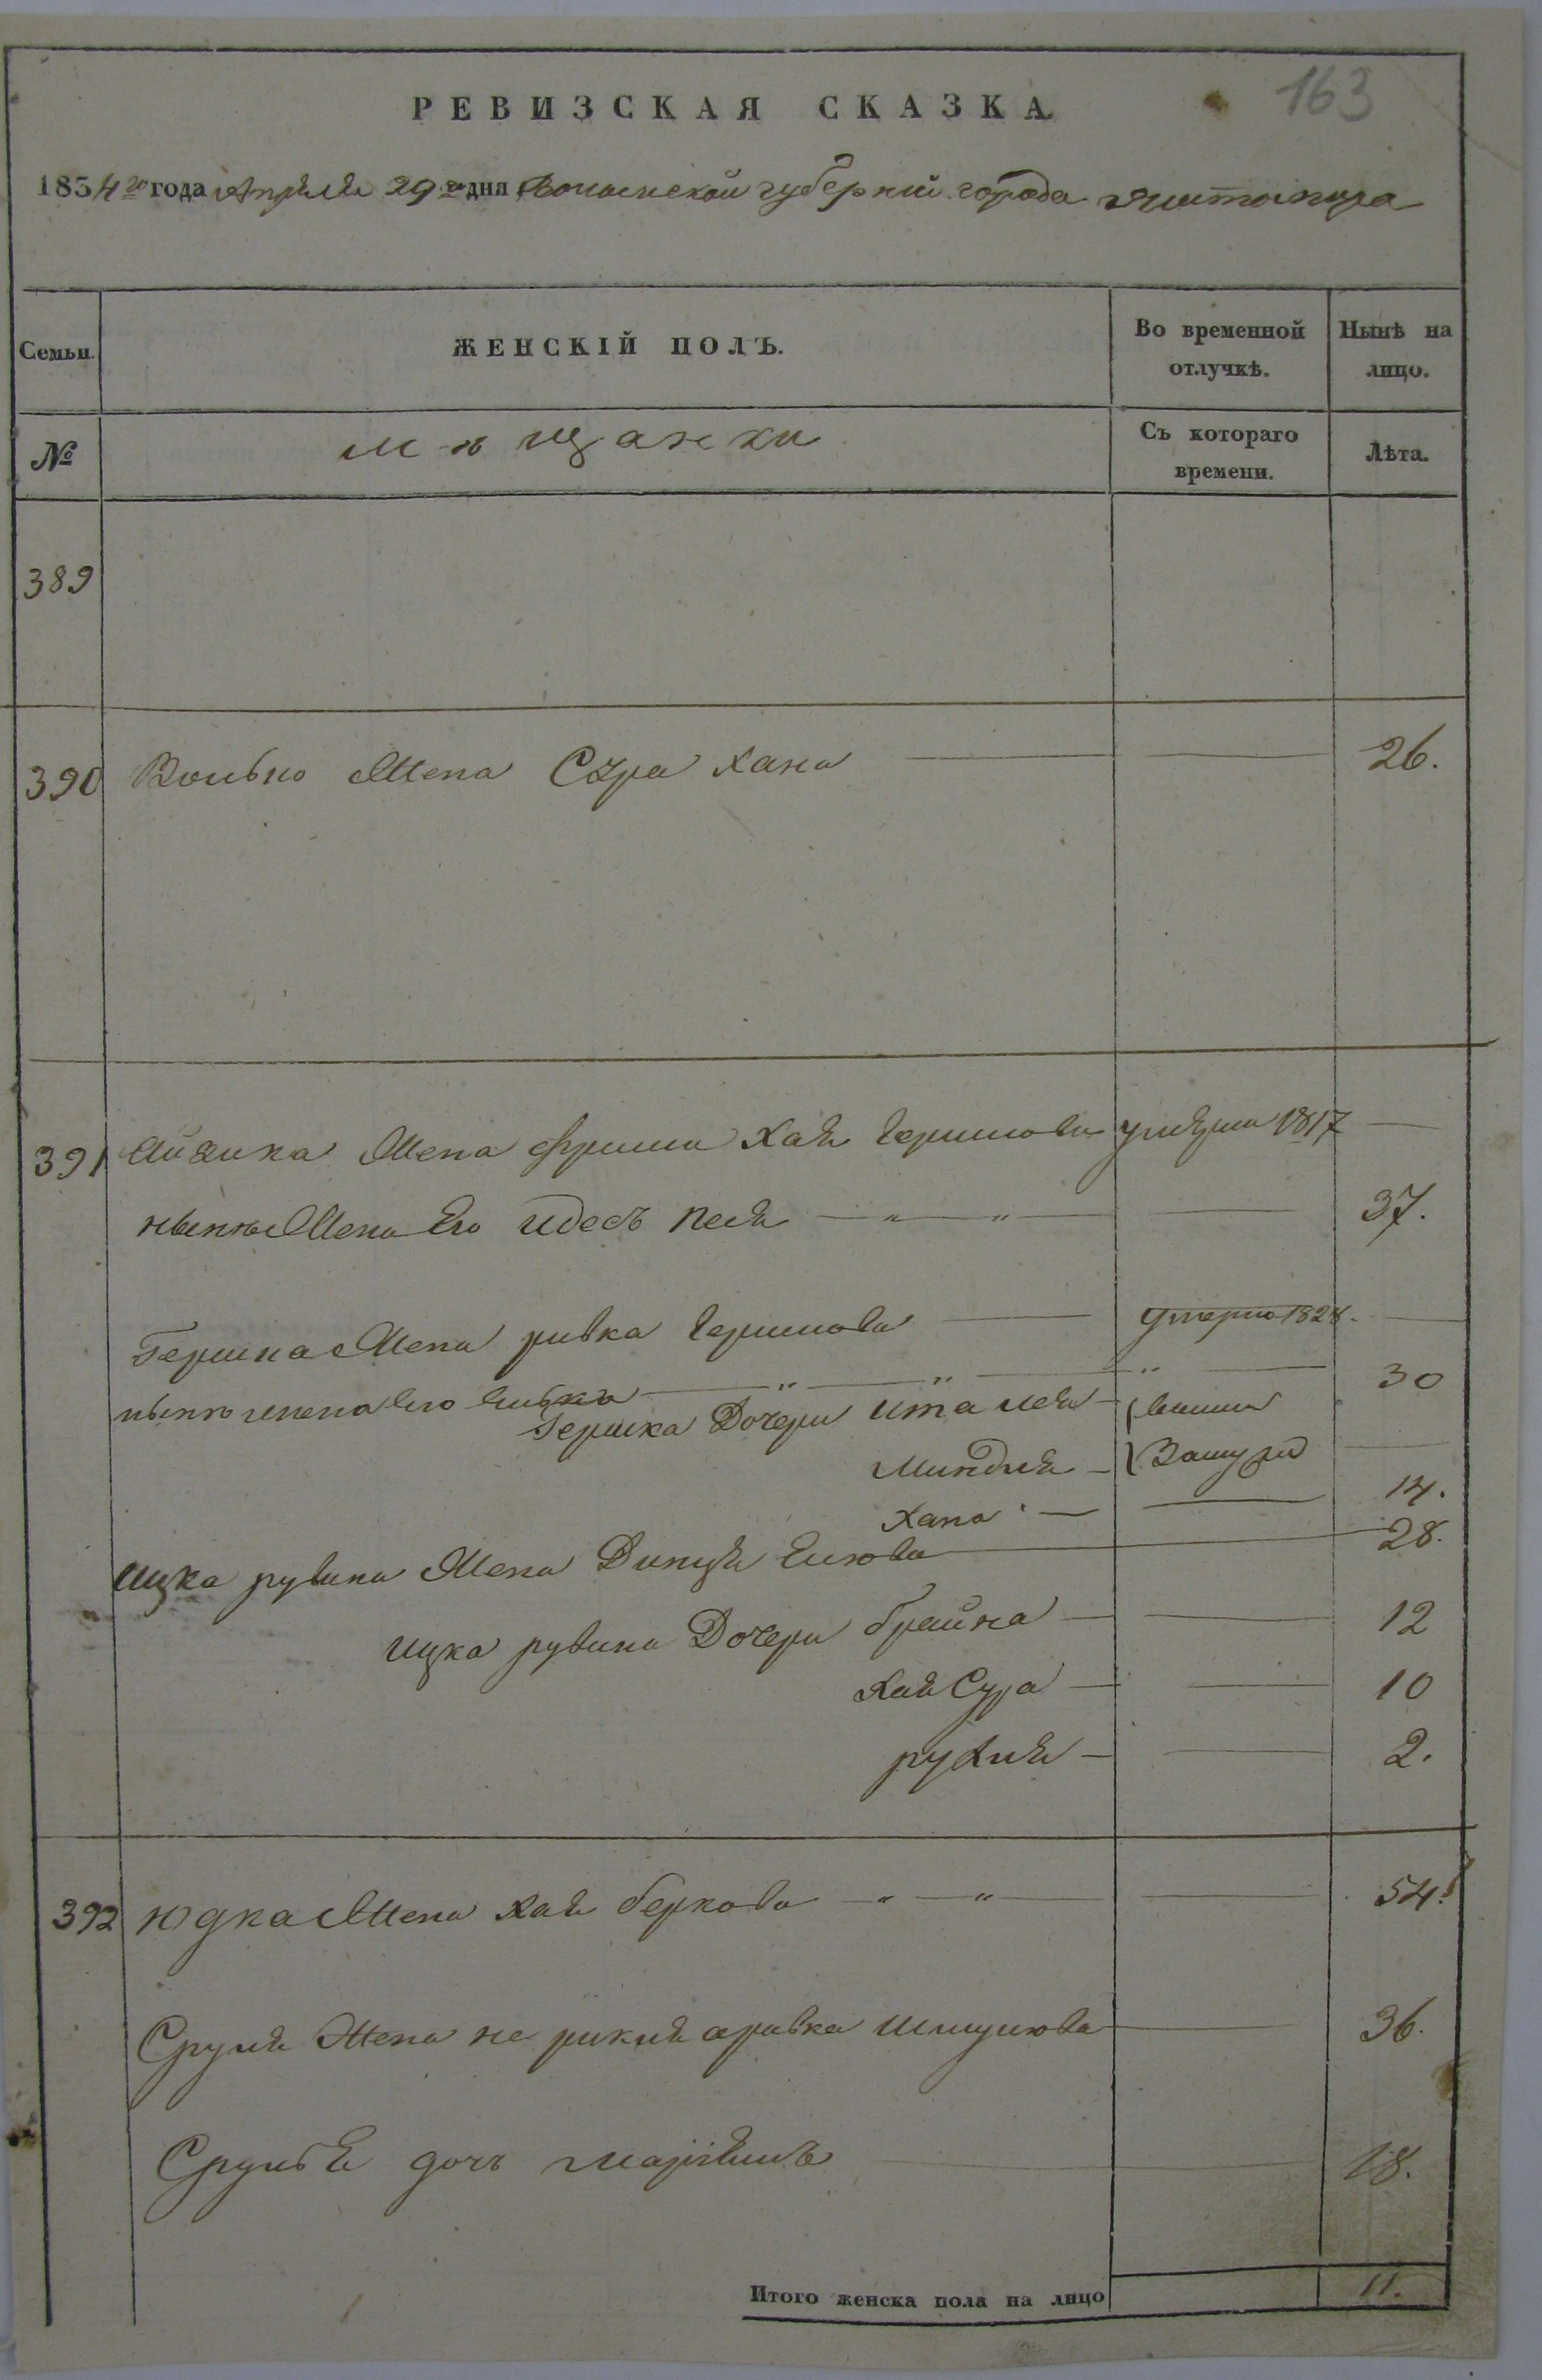 163
РЕВИЗСКАЯ СКАЗКА
1834го года Апреля 29го дня Волынской губерніи города Житомира
Семьи. ЖЕНСКІЙ ПОЛЪ. Во временной отлучкѣ. Нынѣ на лицо.
№ мѣщанки Съ котораго времени. Лѣта.
389
390 Волько Жена Сура Хана 26.
391 Айзика Жена Фрима Хая Гершкова умерша 1817
нынѣ Жена Его Идесъ Песя 37.
Гершка Жена Ривка Гершкова умерла 1824.
нынѣ жена Его 30
Гершка Дочери Ита Лея вышли
Миндля Замужъ
Хана 14.
Ицка рувина Жена Двися 28.
Ицка рувина Дочери брайна 12
Хая Сура 10
рухля 2.
392 Юдка Жена Хая беркова 54.
Сруля Жена аривка Шмулюва 36.
Сруля дочь маріямъ 18.
Итого женска пола на лицо 11.